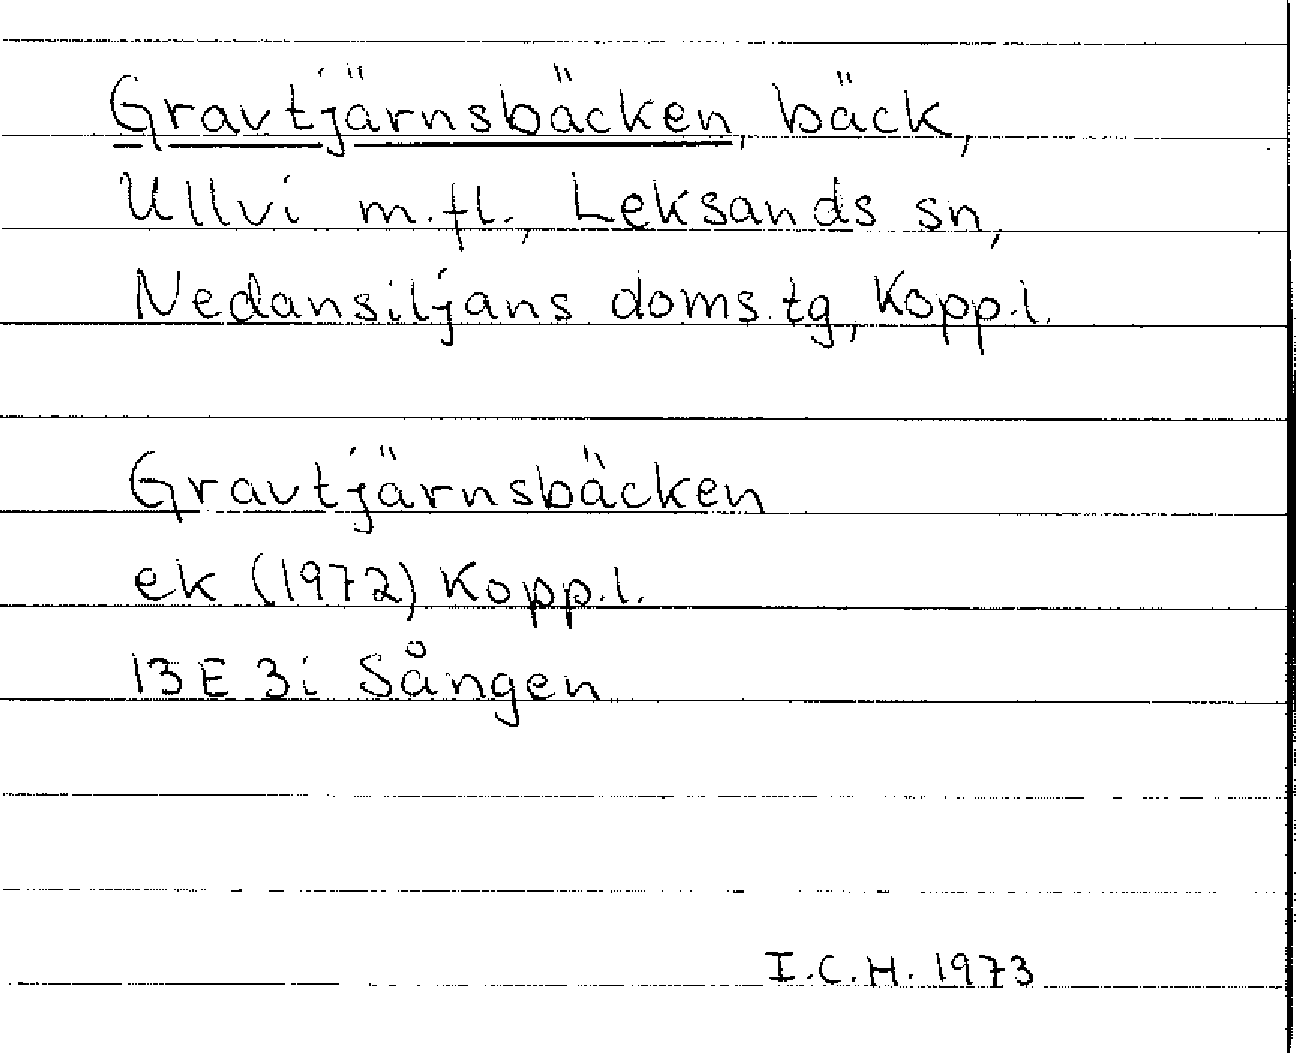 Gravtjärnsbäcken, bäck,
Ullvi m.fl., Leksands sn,
Nedansiljans doms.tg, Kopp.l.
Gravtjärnsbäcken
ek (1972) Kopp.l.
13E 3i Sången
I.C.H. 1973